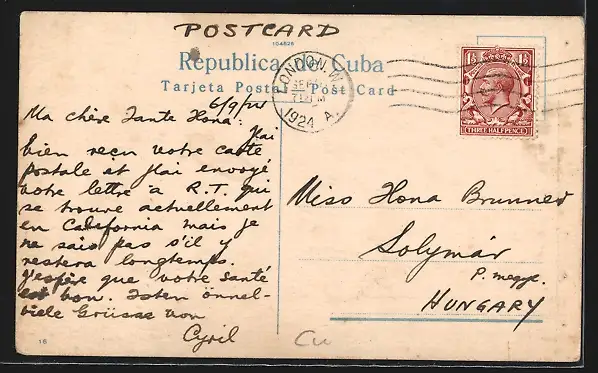 POSTCARD
104828
Republica de Cuba
Tarjeta Postal Post Card
LONDON.W.
1924
1½ 1½
THREE HALFPENCE
6/9/24
Ma chère Tante Ilona: J'ai
bien reçu votre carte
postale et j'ai envoyé
votre lettre a R.T. qui
se trouve actuellement
en California mais je
ne sais pas s'il y
restera longtemps.
J'espère que votre santé
est bon. Isten önnel-
viele Grüsse von
Cyril
Miss Ilona Brunner
Solymár
P. megye.
HUNGARY
16
Cu